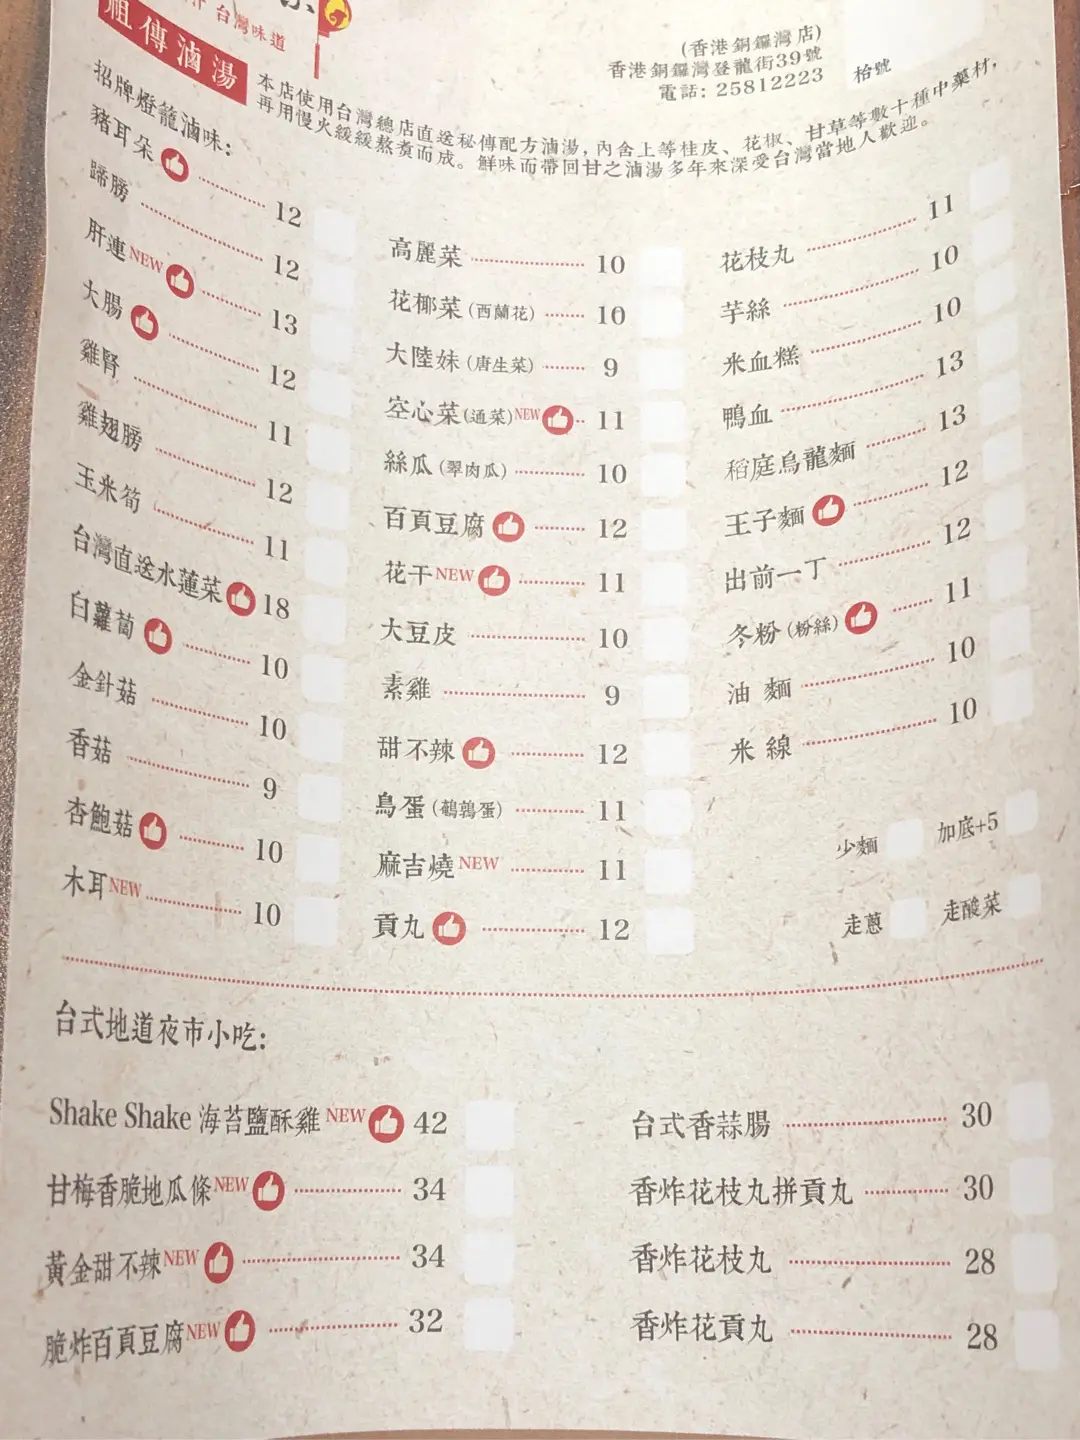 台灣味道
祖傳滷湯
(香港銅鑼灣店)
香港銅鑼灣登龍街39號
電話: 25812223
枱號
本店使用台灣總店直送秘傳配方滷湯, 內含上等桂皮、花椒、甘草等數十種中藥材,
再用慢火緩緩熬煑而成。鮮味而帶回甘之滷湯多年來深受台灣當地人歡迎。
招牌燈籠滷味:
豬耳朵 12
蹄膀 12
肝連 NEW 13
大腸 12
雞腎 11
雞翅膀 12
玉米筍 11
台灣直送水蓮菜 18
白蘿蔔 10
金針菇 10
香菇 9
杏鮑菇 10
木耳 NEW 10
高麗菜 10
花椰菜 (西蘭花) 10
大陸妹 (唐生菜) 9
空心菜 (通菜) NEW 11
絲瓜 (翠肉瓜) 10
百頁豆腐 12
花干 NEW 11
大豆皮 10
素雞 9
甜不辣 12
鳥蛋 (鵪鶉蛋) 11
麻吉燒 NEW 11
貢丸 12
花枝丸 11
芋絲 10
米血糕 10
鴨血 13
稻庭烏龍麵 13
王子麵 12
出前一丁 12
冬粉 (粉絲) 11
油麵 10
米線 10
少麵 加底+5
走蔥 走酸菜
台式地道夜市小吃:
Shake Shake 海苔鹽酥雞 NEW 42
甘梅香脆地瓜條 NEW 34
黃金甜不辣 NEW 34
脆炸百頁豆腐 NEW 32
台式香蒜腸 30
香炸花枝丸拼貢丸 30
香炸花枝丸 28
香炸花貢丸 28